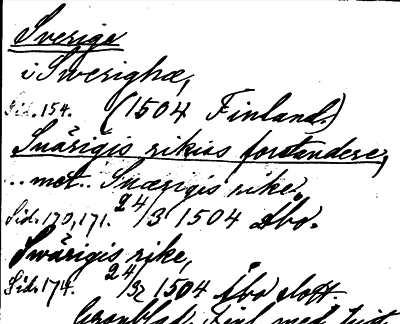 Sverige
i Swerighæ,
Sid. 154. (1504 Finland.)
Suärigis rikius forstandere,
.. met .. Snærigis rike,
Sid. 170, 171. 24/3 1504 Åbo.
Swärigis rike,
Sid. 174. 24/3 1504 Åbo slott.
Grönblad, Finl. med